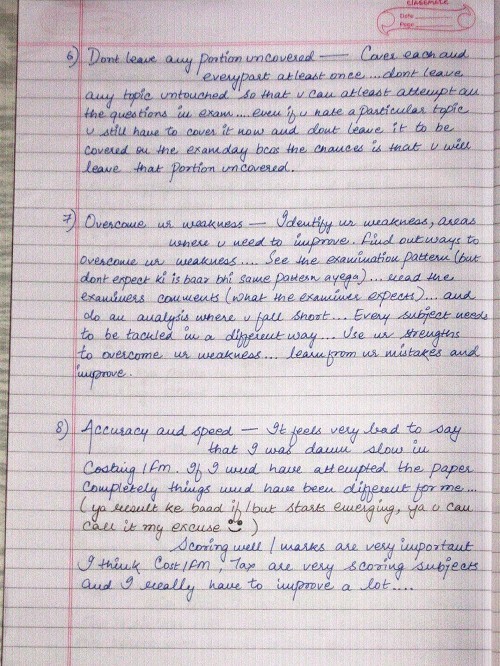 classmate
Date
Page
6) Dont leave any portion uncovered — Cover each and
every part atleast once... dont leave
any topic untouched so that u can atleast attempt all
the questions in exam.... even if u hate a particular topic
u still have to cover it now and dont leave it to be
covered on the exam day bcos the chances is that u will
leave that portion uncovered.
7) Overcome ur weakness — Identify ur weakness, areas
where u need to improve. Find out ways to
overcome ur weakness.... See the examination pattern (but
dont expect ki is baar bhi same pattern ayega)... read the
examiners comments (what the examiner expects)... and
do an analysis where u fall short... Every subject needs
to be tackled in a different way... Use ur strengths
to overcome ur weakness... learn from ur mistakes and
improve.
8) Accuracy and speed — It feels very bad to say
that I was damn slow in
Costing/Fm. If I wud have attempted the paper
completely things wud have been different for me...
(ya result ke baad if/but starts emerging, ya u can
call it my excuse)
Scoring well/marks are very important
I think Cost/Fm, Tax are very scoring subjects
and I really have to improve a lot....